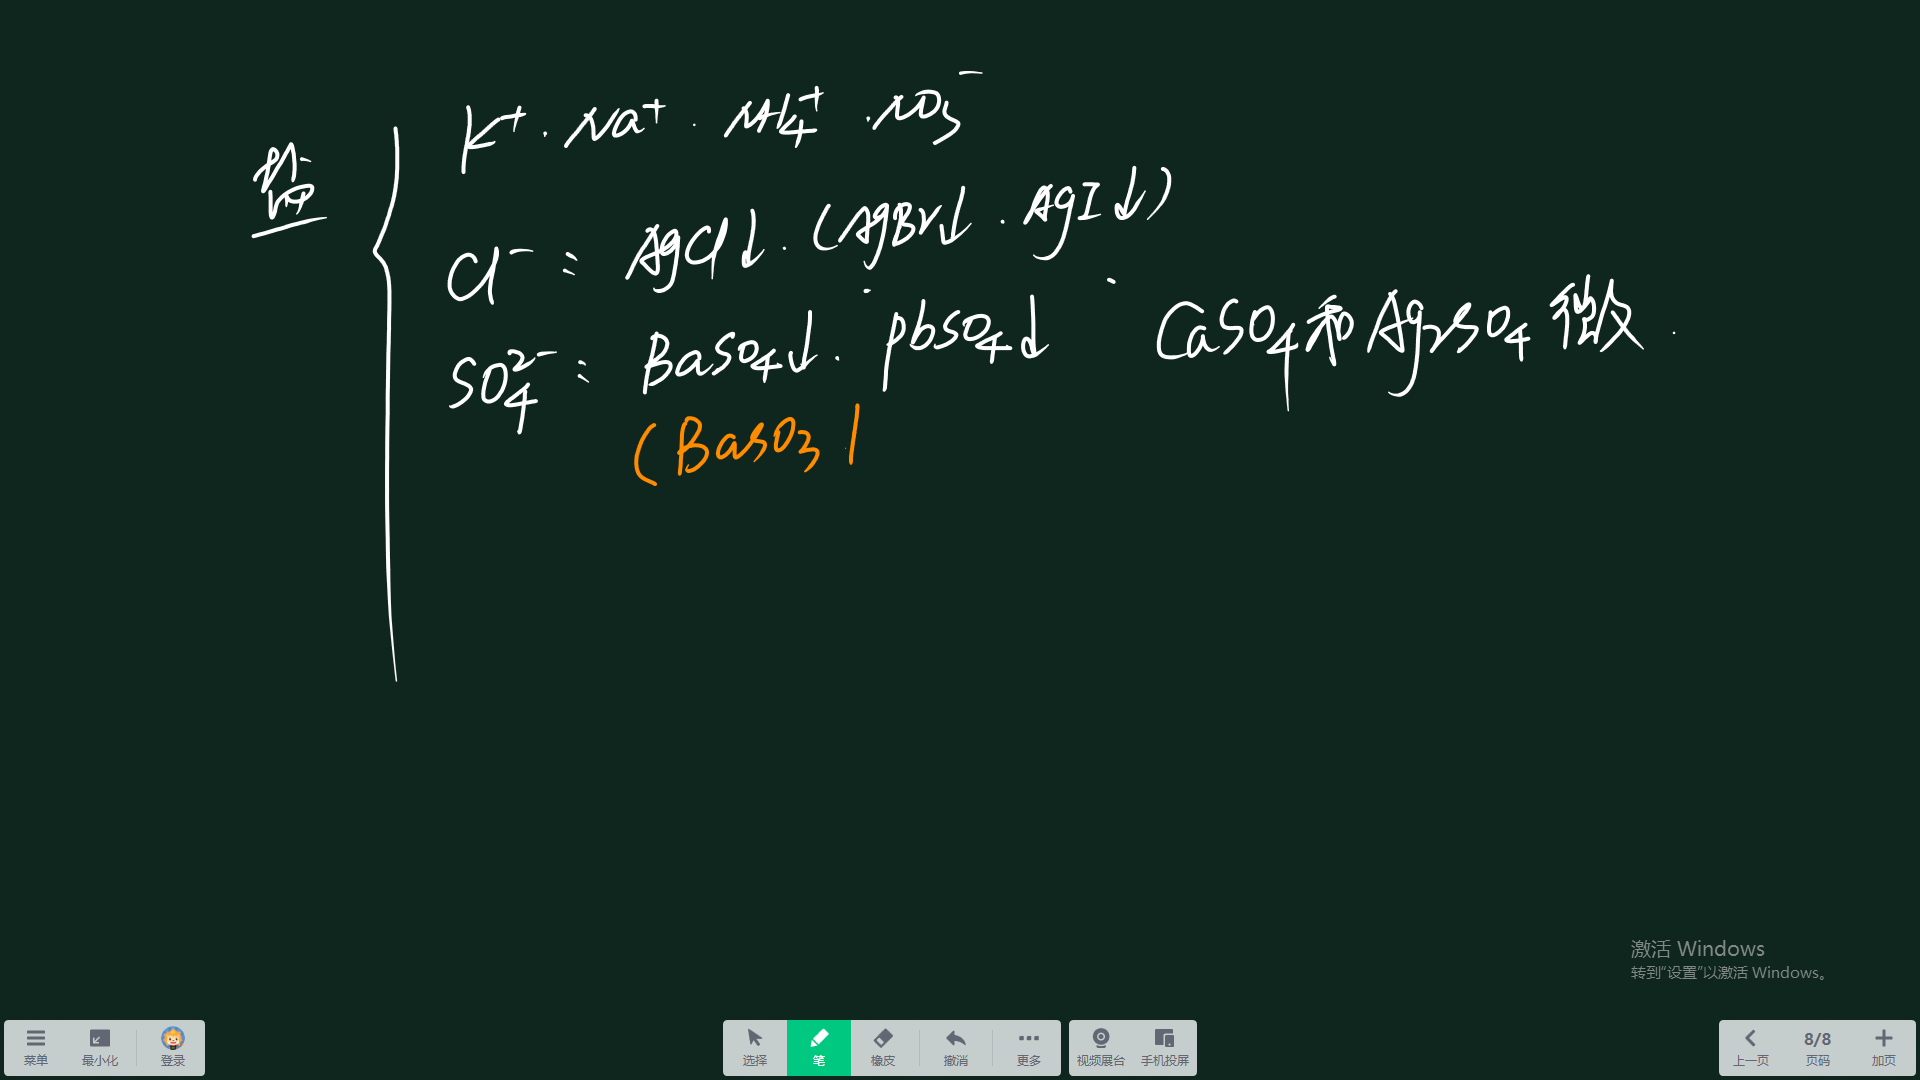 盐
K⁺. Na⁺. NH₄⁺. NO₃⁻
Cl⁻: AgCl↓. (AgBr↓. AgI↓)
SO₄²⁻: BaSO₄↓. PbSO₄↓ CaSO₄和Ag₂SO₄微.
(BaSO₃
激活 Windows
转到"设置"以激活 Windows。
菜单 最小化 登录 选择 笔 橡皮 撤消 更多 视频展台 手机投屏 上一页 8/8 页码 加页